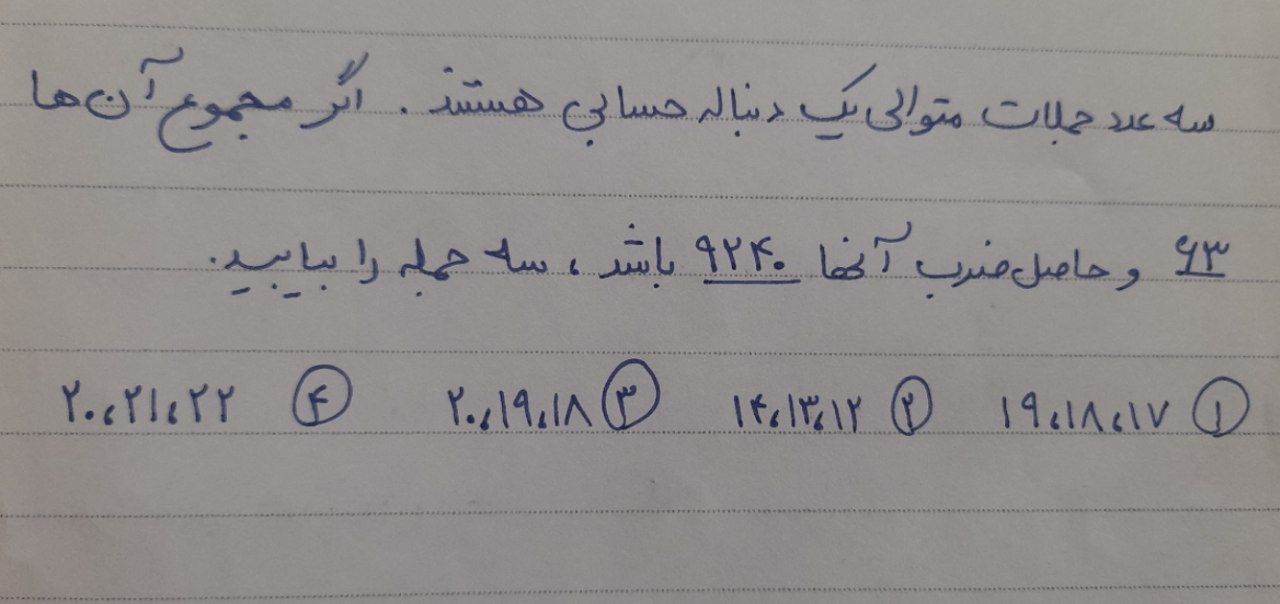 سه عدد جملات متوالی یک دنباله حسابی هستند. اگر مجموع آن ها
۶۳ و حاصل ضرب آنها ۹۲۴۰ باشد، سه جمله را بیابید.
۱ ۱۷، ۱۸، ۱۹ ۲ ۱۲، ۱۳، ۱۴ ۳ ۱۸، ۱۹، ۲۰ ۴ ۲۲، ۲۱، ۲۰